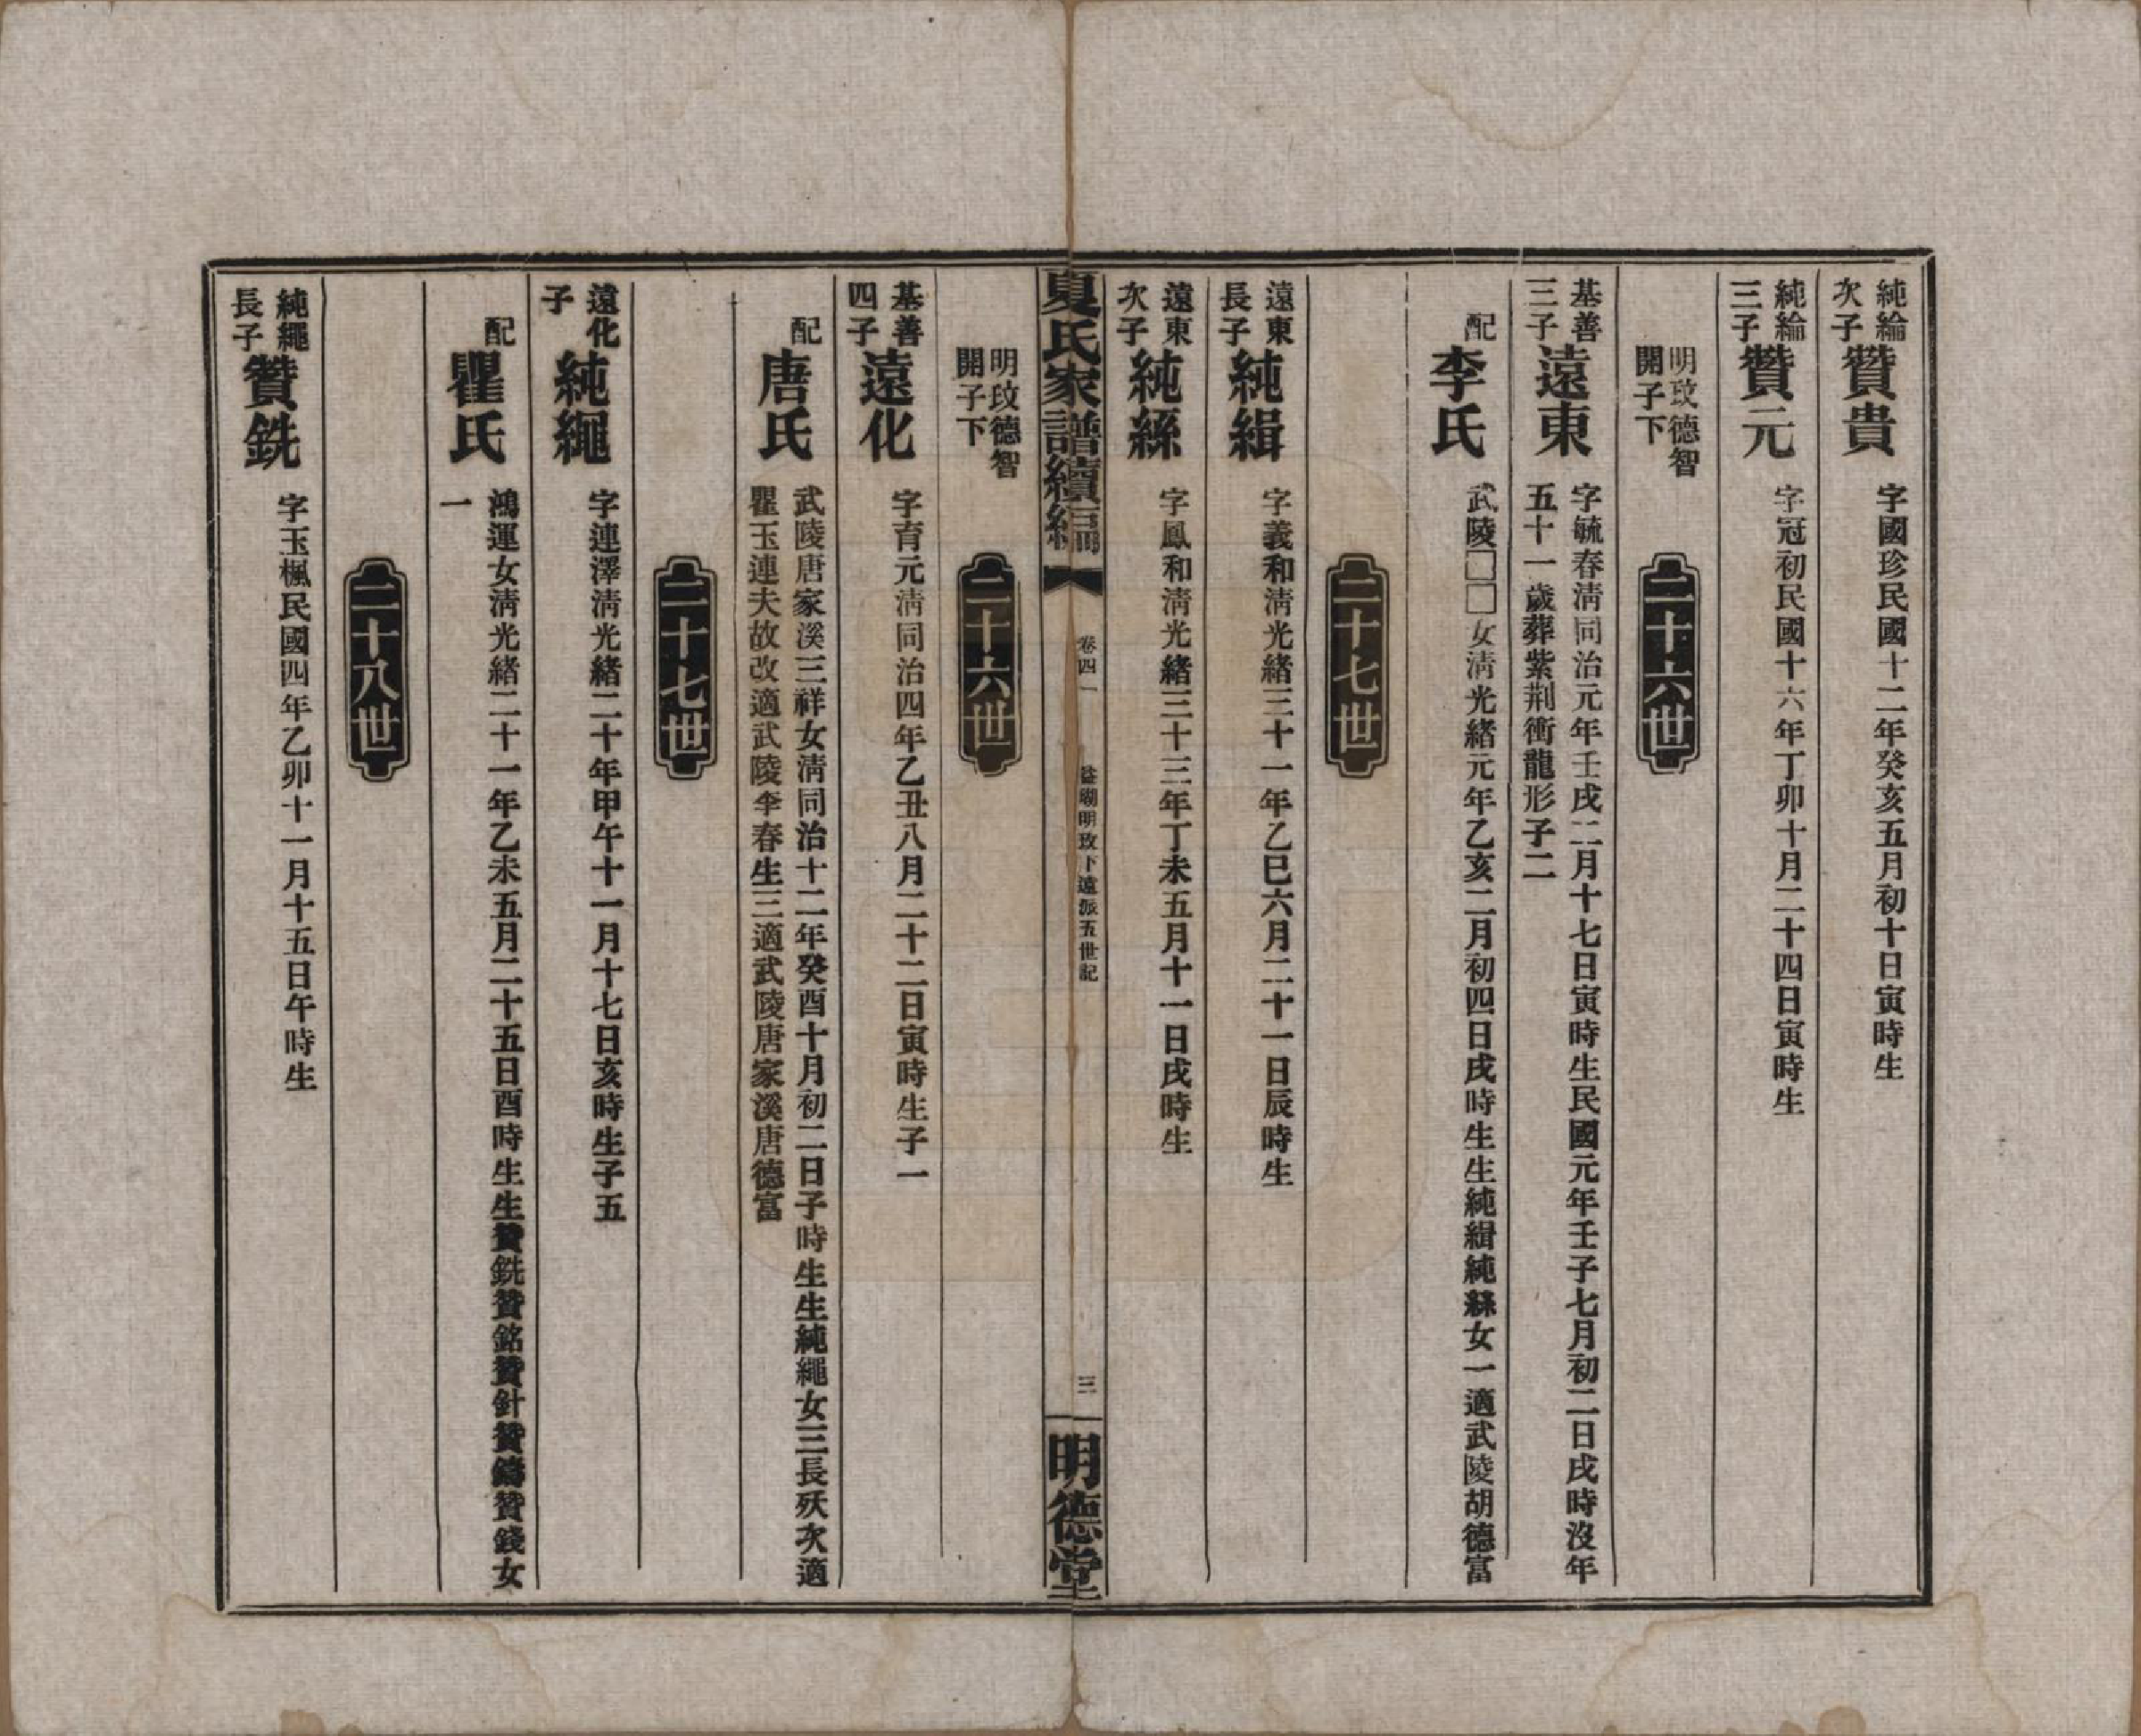 純綸次子
贊貴
字國珍民國十二年癸亥五月初十日寅時生
純綸三子
贊元
字冠初民國十六年丁卯十月二十四日寅時生
明玫德智
開子下
二十六世
基善三子
遠東
字毓春淸同治元年壬戌二月十七日寅時生民國元年壬子七月初二日戌時沒年
五十一歲葬紫荆衝龍形子二
配
李氏
武陵□□女淸光緖元年乙亥二月初四日戌時生生純緝純絲女一適武陵胡德富
二十七世
遠東長子
純緝
字義和淸光緖三十一年乙巳六月二十一日辰時生
遠東次子
純絲
字鳳和淸光緖三十三年丁未五月十一日戌時生
夏氏家譜續編
卷四一
明玫下遠派五世記
三
明德堂
明玫德智
開子下
二十六世
基善四子
遠化
字育元淸同治四年乙丑八月二十二日寅時生子一
配
唐氏
武陵唐家溪三祥女淸同治十二年癸酉十月初二日子時生生純繩女三長殀次適
瞿玉連夫故改適武陵李春生三適武陵唐家溪唐德富
二十七世
遠化子
純繩
字連澤淸光緖二十年甲午十一月十七日亥時生子五
配
瞿氏
鴻運女淸光緖二十一年乙未五月二十五日酉時生生贊銑贊銘贊針贊鑄贊錢女
一
二十八世
純繩長子
贊銑
字玉楓民國四年乙卯十一月十五日午時生